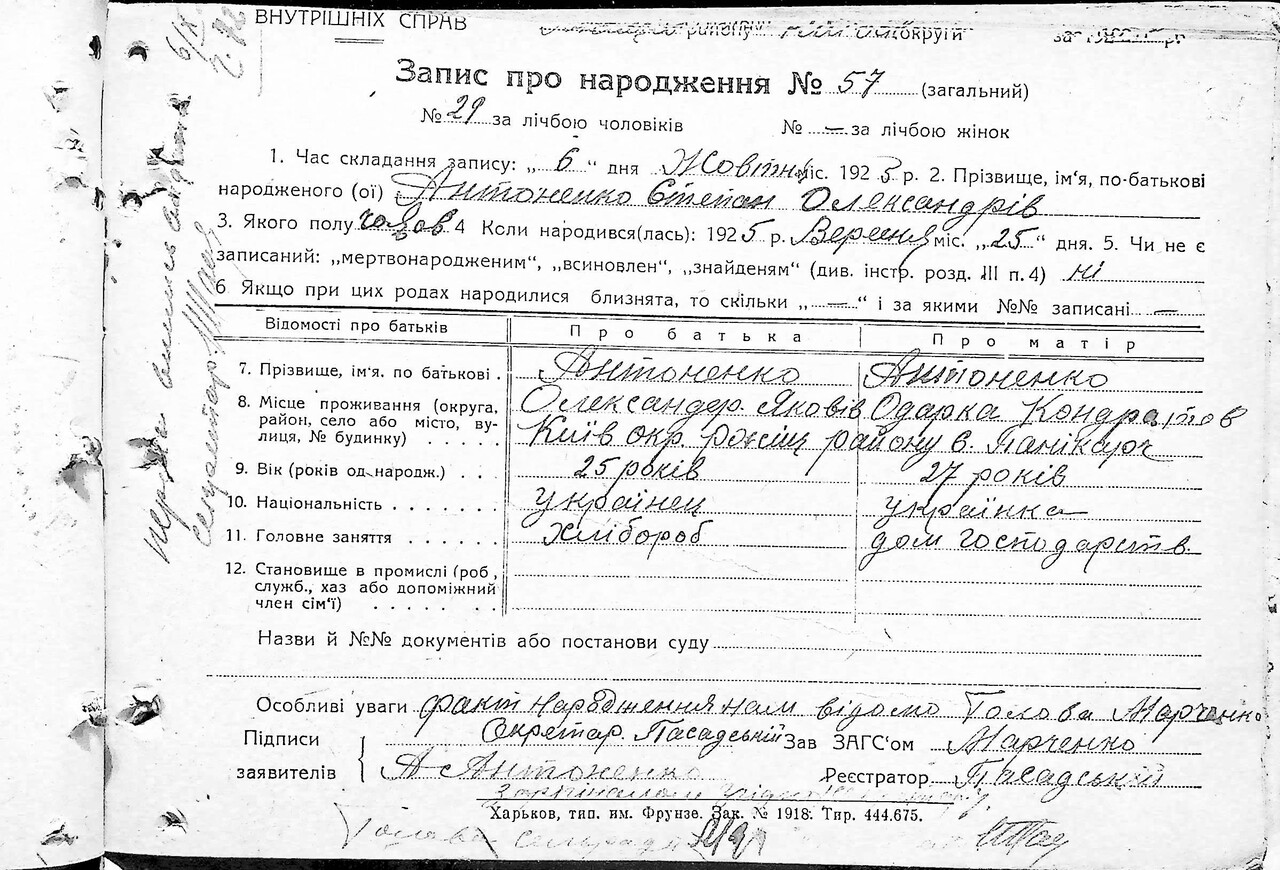 ВНУТРІШНІХ СПРАВ
району округи
Запис про народження № 57 (загальний)
№ 29 за лічбою чоловіків № — за лічбою жінок
1. Час складання запису: „ 6 “ дня Жовтня міс. 1925 р. 2. Прізвище, ім‘я, по-батькові
народженого (ої) Антоненко Степан Олександрів
3. Якого полу чолов 4 Коли народився(лась): 1925 р. Вересня міс. „25“ дня. 5. Чи не є
записаний: „мертвонародженим“, „всиновлен“, „знайденям“ (див. інстр. розд. III п.4) ні
6 Якщо при цих родах народилися близнята, то скільки „ — “ і за якими №№ записані —
Відомості про батьків Про батька Про матір
7. Прізвище, ім‘я. по батькові . Антоненко Антоненко
8. Місце проживання (округа, Олександер Яковів Одарка Кондратов
район, село або місто, ву-
лиця, № будинку) . . . . . Київ окр. району в. Панікарч
9. Вік (років од народж.) . . . 25 років 27 років
10. Національність . . . . . . . українец українка
11. Головне заняття . . . . . . Хлібороб дом господарств
12. Становище в промислі (роб,
служб., хаз або допоміжний
член сім‘ї) . . . . . . . .
Назви й №№ документів або постанови суду
Особливі уваги факт народження нам відомо Голова Марченко
Секретар. Пасадській
Підписи Зав ЗАГС‘ом Марченко
заявителів А Антоненко Реєстратор Пасадській
Харьков, тип. им. Фрунзе. Зак. № 1918. Тир. 444.675.
Голова Сельради